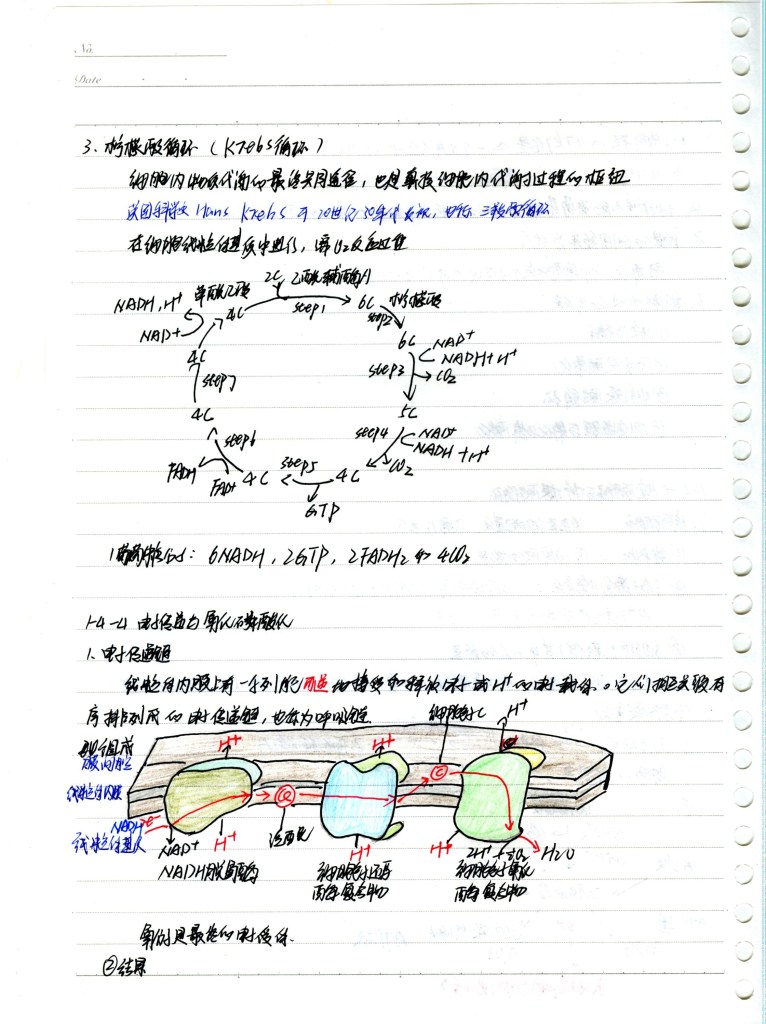 No.
Date
3、柠檬酸循环（Krebs循环）
细胞内物质代谢的最终共同途径，也是真核细胞内代谢过程的枢纽
英国科学家Hans Krebs于20世纪30年代发现，也称三羧酸循环
在细胞线粒体基质中进行，需O2反应过程
2C 乙酰辅酶A
NADH, H+ 草酰乙酸 4C step1 6C 柠檬酸
NAD+ step2
4C 6C NAD+
NADH+H+
step7 step3 CO2
4C 5C
step6 step4 NAD+
NADH+H+
FADH step5 CO2
FAD+ 4C 4C
GTP
1葡萄糖分子：6NADH，2GTP，2FADH2和4CO2
1-4-4 电子传递与氧化磷酸化
1、电子传递链
线粒体内膜上有一系列能可逆地接受和释放电子或H+的电子载体。它们相互关联有
序排列成的电子传递链，也称为呼吸链
细胞色素C H+
组成
膜间腔 H+ H+
线粒体内膜 Q C
NADH e-
线粒体基质 NAD+ H+ 泛醌 H+ H+ 2H+ + ½O2 H2O
NADH脱氢酶 细胞色素还原 细胞色素氧化
酶复合物 酶复合物
氧的是最终的电子受体.
②结果